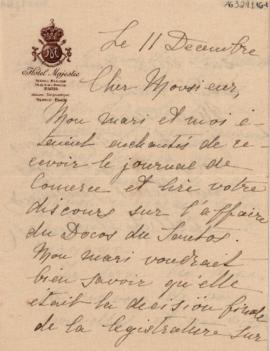 Hotel Majestic
PARIS
Le 11 Decembre
Cher Monsieur,
Mon mari et moi é-
taient enchantés de re-
cevoir le journal de
Comerce et lire votre
discours sur l'affaire
du Docos du Santos.
Mon mari voudrait
bien savoir qu'elle
était la decision finale
de la legislature sur